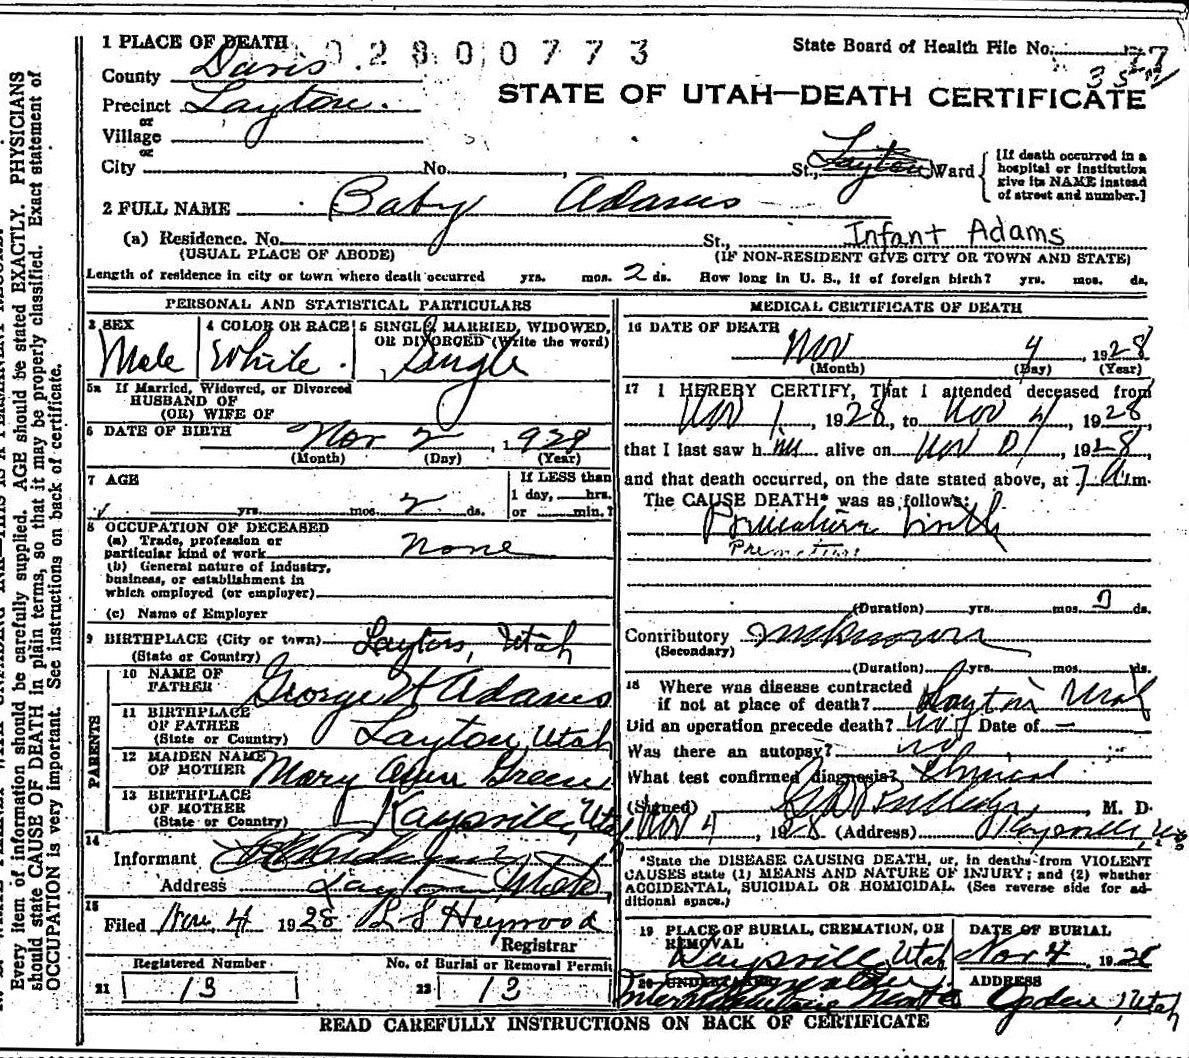 1 PLACE OF DEATH
0 2 8 0 0 7 7 3
State Board of Health File No.
County Davis
Precinct Layton.
or
Village
or
City No. St., Layton Ward
[If death occurred in a hospital or institution give its NAME instead of street and number.]
STATE OF UTAH—DEATH CERTIFICATE
2 FULL NAME Baby Adams
(a) Residence. No. St., Infant Adams
(USUAL PLACE OF ABODE) (IF NON-RESIDENT GIVE CITY OR TOWN AND STATE)
Length of residence in city or town where death occurred yrs. mos. 2 ds. How long in U. S., if of foreign birth? yrs. mos. ds.
PERSONAL AND STATISTICAL PARTICULARS
3 SEX 4 COLOR OR RACE 5 SINGLE, MARRIED, WIDOWED, OR DIVORCED (Write the word)
Male White. Single
5a If Married, Widowed, or Divorced
HUSBAND OF
(OR) WIFE OF
6 DATE OF BIRTH Nov 2, 1928
(Month) (Day) (Year)
7 AGE
yrs. mos. 2 ds.
If LESS than
1 day, hrs.
or min.?
8 OCCUPATION OF DECEASED
(a) Trade, profession or
particular kind of work None
(b) General nature of industry,
business, or establishment in
which employed (or employer)
(c) Name of Employer
9 BIRTHPLACE (City or town) Layton, Utah
(State or Country)
PARENTS
10 NAME OF
FATHER George W Adams
11 BIRTHPLACE
OF FATHER
(State or Country) Layton, Utah
12 MAIDEN NAME
OF MOTHER Mary Green
13 BIRTHPLACE
OF MOTHER
(State or Country) Kaysville, Utah
14
Informant Adams
Address Layton, Utah
15
Filed Nov. 4 1928 Heywood
Registrar
Registered Number No. of Burial or Removal Permit
21 13 22 13
MEDICAL CERTIFICATE OF DEATH
16 DATE OF DEATH
Nov 4, 1928
(Month) (Day) (Year)
17 I HEREBY CERTIFY, That I attended deceased from
Nov 1, 1928, to Nov 4, 1928
that I last saw him alive on Nov, 1928,
and that death occurred, on the date stated above, at 7 A.m.
The CAUSE DEATH* was as follows:
Premature birth
Premature
(Duration) yrs. mos. ds.
Contributory Unknown
(Secondary)
(Duration) yrs. mos. ds.
18 Where was disease contracted
if not at place of death? Layton Utah
Did an operation precede death? no Date of —
Was there an autopsy? no
What test confirmed diagnosis? Clinical
(Signed) M. D.
Nov 4, 1928 (Address) Kaysville, Ut
*State the DISEASE CAUSING DEATH, or, in deaths from VIOLENT
CAUSES state (1) MEANS AND NATURE OF INJURY; and (2) whether
ACCIDENTAL, SUICIDAL OR HOMICIDAL. (See reverse side for ad-
ditional space.)
19 PLACE OF BURIAL, CREMATION, OR
REMOVAL DATE OF BURIAL
Kaysville, Utah Nov 4, 1928
20 UNDERTAKER ADDRESS
Ogden, Utah
READ CAREFULLY INSTRUCTIONS ON BACK OF CERTIFICATE
Every item of information should be carefully supplied. AGE should be stated EXACTLY. PHYSICIANS
should state CAUSE OF DEATH in plain terms, so that it may be properly classified. Exact statement of
OCCUPATION is very important. See instructions on back of certificate.